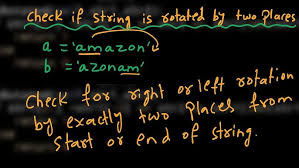 Check if string is rotated by two places
a = 'amazon'
b = 'azonam'
Check for right or left rotation
by exactly two places from
start or end of string.